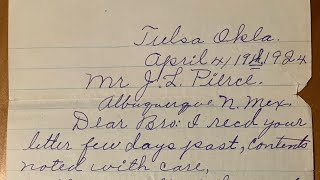 Tulsa Okla.
April 4/19th, 1924
Mr J. L. Pierce.
Albuquerque N. Mex
Dear Bro: I recd your
letter few days past, contents
noted with care,